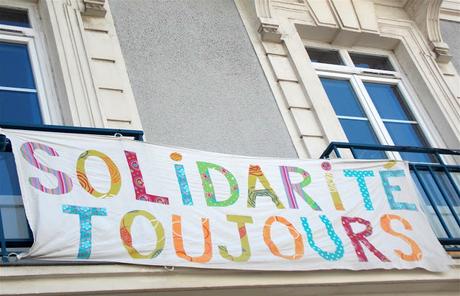 SOLiDARiTÉ
TOUJOURS